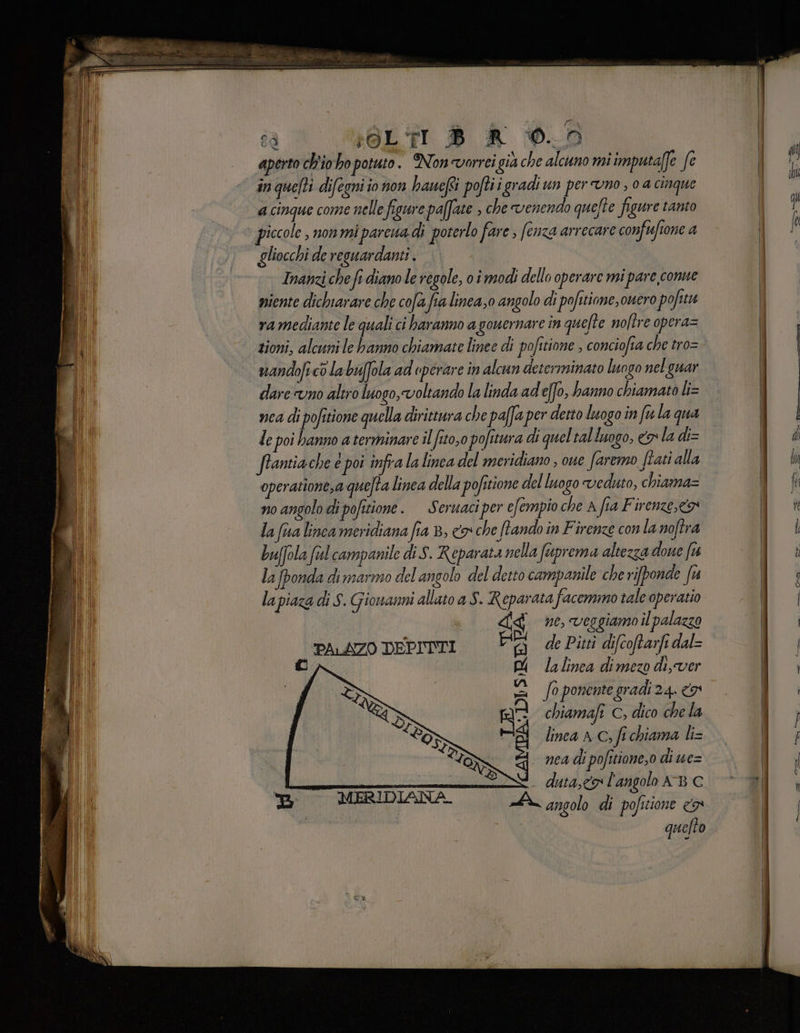 L I B R O.
aperto ch'io ho potuto. Non vorrei già che alcuno mi imputaſſe ſe
in queſti diſegni io non haueſsi poſti i gradi un per vno, o a cinque
a cinque come nelle figure paſſate, che venendo queſte figure tanto
piccole, non mi pareua di poterlo fare, ſenza arrecare confuſione a
gliocchi de reguardanti.
Inanzi che ſi diano le regole, o i modi dello operare mi pare conue
niente dichiarare che coſa ſia linea, o angolo di poſitione, ouero poſitu
ra mediante le quali ci haranno a gouernare in queſte noſtre opera=
tioni, alcuni le hanno chiamate linee di poſitione, concioſia che tro=
uandoſi cō la buſſola ad operare in alcun determinato luogo nel guar
dare vno altro luogo, voltando la linda ad eſſo, hanno chiamato li=
nea di poſitione quella dirittura che paſſa per detto luogo in ſu la qua
le poi hanno a terminare il ſito, o poſitura di quel tal luogo, & la di=
ſtantia che è poi infra la linea del meridiano, oue ſaremo ſtati alla
operatione, a queſta linea della poſitione del luogo veduto, chiama=
no angolo di poſitione. Seruaci per eſempio che A ſia Firenze, &
la ſua linea meridiana ſia B, & che ſtando in Firenze con la noſtra
buſſola ſul campanile di S. Reparata nella ſuprema altezza doue fu
la ſponda di marmo del angolo del detto campanile che riſponde ſu
la piaza di S. Giouanni allato a S. Reparata facemmo tale operatio
ne, veggiamo il palazzo
de Pitti diſcoſtarſi dal=
la linea di mezo dì, ver
ſo ponente gradi 24. &
chiamaſi C, dico che la
linea A C, ſi chiama li=
nea di poſitione, o di ue=
duta, & l'angolo A B C
angolo di poſitione &
queſto
PALAZO DEPITTI
C
LINEA DI POSITIONE
B
MERIDIANA
A